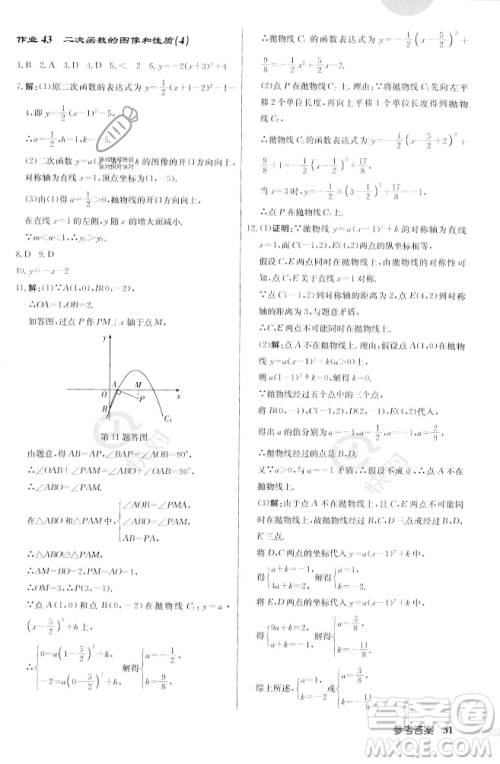 作业 43 二次函数的图像和性质(4)
1. B 2. A 3. D 4. D 5. < 2 6. y=-(x-2)²+4
7. 解:(1)原二次函数的表达式为 y=1/2(x+1-2)²-1-
4,即 y=1/2(x-1)²-5,
∴a=1/2,h=1,k=-5.
(2)二次函数 y=a(x-h)²+k 的图像的开口方向向上,
对称轴为直线 x=1,顶点坐标为(1,-5).
(3)由(1)得 a=1/2>0,抛物线的开口方向向上,
在直线 x=1 的左侧,y 随 x 的增大而减小.
∵m<n<1,∴y₁>y₂.
8. D 9. D
10. y=-x-2
11. 解:(1)∵点 A(1,0),B(0,-2),
∴OA=1,OB=2.
如答图,过点 P 作 PM⊥x 轴于点 M,
y
O A M x
P
B C₁
第 11 题答图
由题意,得 AB=AP,∠BAP=90°,
∴∠OAB+∠PAM=∠OAB+∠ABO=90°,
∴∠ABO=∠PAM.
在△ABO 和△PAM 中, {∠AOB=∠PMA, ∠ABO=∠PAM, AB=PA,
∴△ABO≌△PAM,
∴AM=BO=2,PM=AO=1,
∴OM=3,∴P(3,-1).
∵点 A(1,0)和点 B(0,-2)在抛物线 C₁:y=a·
(x-5/2)²+h 上,
∴ {0=a(1-5/2)²+h, -2=a(0-5/2)²+h, 解得 {a=-1/2, h=9/8,
∴抛物线的函数表达式为 y=-1/2(x-5/2)²+
9/8.
(2)点 P 不在抛物线 C₂ 上. 理由:将抛物线 C₁:y=
-1/2(x-5/2)²+9/8 向上平移 1 个单位长度得到抛
物线 C₂,则抛物线 C₂ 的表达式为 y=-1/2(x-5/2)²
+9/8+1=-1/2(x-5/2)²+17/8.
当 x=3 时,y=-1/2(3-5/2)²+17/8=2≠-1,
∴点 P 不在抛物线 C₂ 上.
12. (1)证明:∵抛物线 y=a(x-1)²+k 的对称轴为直
线 x=1,C(-2,2)、E(4,2)两点的纵坐标相等,
∴C、E 两点关于直线 x=1 对称.
假设 C、E 两点同时在抛物线上,
∵抛物线的对称轴为直线 x=1,
∴C、E 两点关于对称轴对称,与题意矛盾,
∴C、E 两点不可能同时在抛物线上.
(2)解:点 A 不在抛物线上. 理由:假设点 A 在抛物
线 y=a(x-1)²+k(a>0)上,
则 a(1-1)²+k=0,解得 k=0.
∵抛物线经过五个点中的三个点,
∴将 B(0,-1)、C(-2,2)、D(2,-1)、E(4,2)代入,
得出 a 的值分别为 a=-1,a=2/9,a=-1,a=2/9,
∴抛物线经过的点是 B、D.
又∵a>0,与 a=-1 矛盾,
∴假设不成立,∴点 A 不在抛物线上.
(3)解:由于点 A 不在抛物线上,C、E 两点不可能同
时在抛物线上,故抛物线经过 B、C、D 三点或 B、D、
E 三点.
将 D、C 两点的坐标代入 y=a(x+1)²+k 中,
得 {a+k=-1, 9a+k=2, 解得 {a=3/8, k=-11/8.
将 D、E 两点的坐标代入 y=a(x-1)²+k 中,
得 {a+k=-1, 9a+k=2, 解得 {a=3/8, k=-11/8,
综上所述, {a=3/8, k=-11/8.
参考答案 51